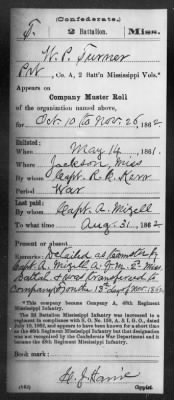 (Confederate.)
T. 2 Battalion. Miss.
W. P. Turner
Pvt, Co. A, 2 Batt'n Mississippi Vols.*
Appears on
Company Muster Roll
of the organization named above,
for Oct. 10 to Nov. 26, 1862.
Enlisted:
When May 14, 1861.
Where Jackson, Miss
By whom Capt. R. E.
Period War
Last paid:
By whom Capt. A. Mizell
To what time Aug. 31, 1862
Present or absent
Remarks: Detailed as teamster by
Capt. A. Mizell A.Q.M. 2 Miss
Battal. & transferred to
Company 13 day of Nov. 1862
*This company became Company A, 48th Regiment
Mississippi Infantry.
The 2d Battalion Mississippi Infantry was increased to a
regiment in compliance with S. O. No.
and appears to have been known for a short time
as the 48th Regiment Mississippi Infantry but that designation
was not recognized by the Confederate War Department and it
became the 48th Regiment Mississippi Infantry.
Book mark:
(642)
Copyist.